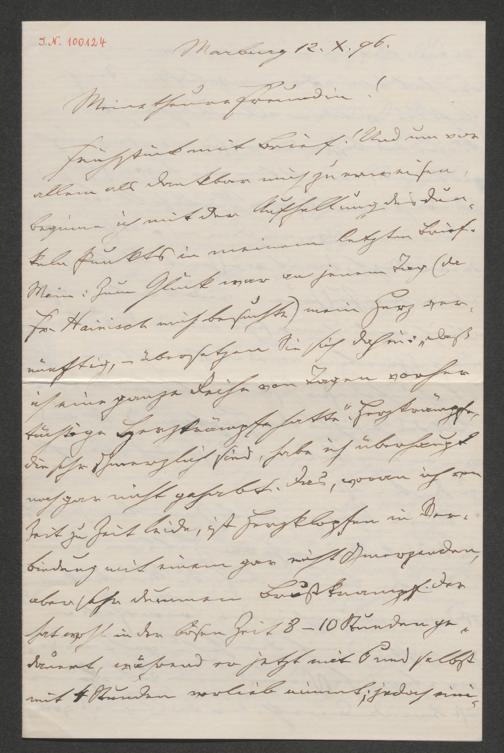 J.N. 100124
Marburg 12. X. 96.
Meine theure Freundin!
Frühstück mit Brief! Und um vor
allem als dankbar mich zu erweisen,
beginne ich mit der Aufhellung des dun-
keln Punkts in meinem letzten Brief.
Mein: Zum Glück war an jenem Tag (da
Fr. Hainisch mich besuchte) mein Herz ver-
nünftig, – übersetzen Sie sich dahin: "daß
ich eine ganze Reihe von Tagen vorher
tüchtige Herzkrämpfe hatte". Herzkrämpfe,
die sehr schmerzlich sind, habe ich überhaupt
noch gar nicht gehabt. Das, woran ich von
Zeit zu Zeit leide, ist Herzklopfen in Ver-
bindung mit einem gar nicht schmerzenden,
aber sehr dummen Brustkrampf. Der
hat wohl in der bösen Zeit 8–10 Stunden ge-
dauert, während er jetzt mit 6 und selbst
mit 4 Stunden vorlieb nimmt; jedoch